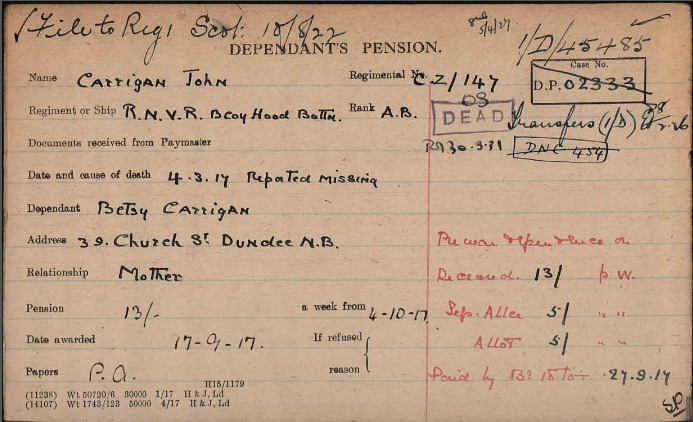 √ File to Reg1 Scot: 18/8/22
5/4/27
DEPENDANT'S PENSION.
1/D/45485
Name CARRIGAN JOHN
Regimental No. C Z/147
Case No.
D.P. 02333
Regiment or Ship R.N.V.R. B Coy Hood Battn.
Rank A.B.
08
DEAD
Transfers (1/D)
Documents received from Paymaster
30.3.31
DNC 454
Date and cause of death 4.3.17 Reported missing
Dependant Betsy Carrigan
Address 39. Church St. Dundee N.B.
Pre war dependence on
Relationship Mother
Deceased. 13/ p W.
Pension 13/- a week from 4-10-17
Sep. Allce 5/ " "
Date awarded 17-9-17.
If refused
reason
Allot 5/ " "
Papers P.A.
Paid by 27.9.17
H15/1179
(11238) Wt 50720/6 30000 1/17 H & J, Ld
(14107) Wt 1743/123 50000 4/17 H & J, Ld
SP